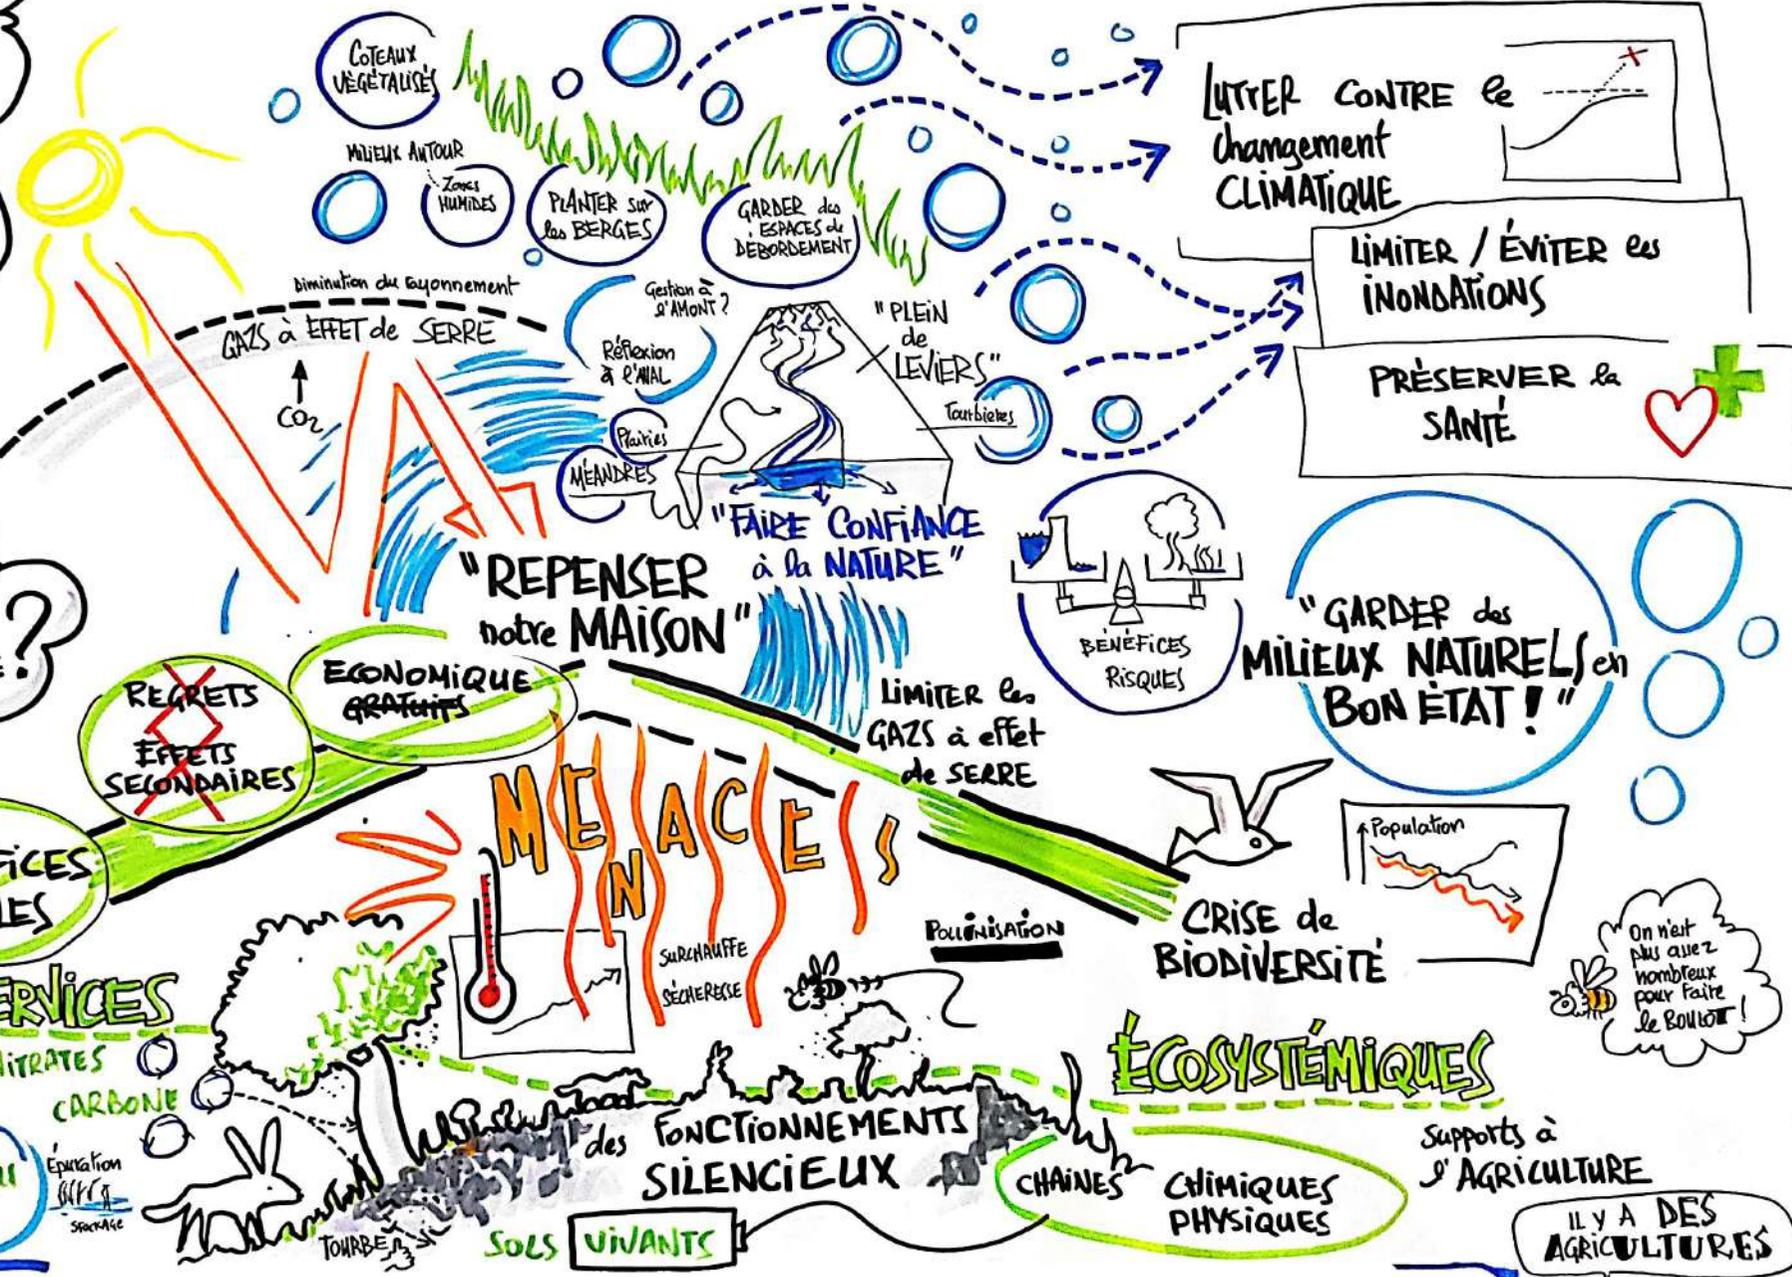 COTEAUX
VÉGÉTALISÉS
MILIEUX AUTOUR
Zones
HUMIDES
PLANTER sur
les BERGES
GARDER des
ESPACES de
DÉBORDEMENT
LUTTER CONTRE le
changement
CLIMATIQUE
LIMITER / ÉVITER les
INONDATIONS
PRÉSERVER la
SANTÉ
Diminution du rayonnement
GAZS à EFFET de SERRE
CO2
Gestion à
l'AMONT ?
Réflexion
à l'AVAL
"PLEIN
de
LEVIERS"
Prairies
MÉANDRES
Tourbières
"FAIRE CONFIANCE
à la NATURE"
"REPENSER
notre MAISON"
BÉNÉFICES
RISQUES
"GARDER des
MILIEUX NATURELS en
BON ÉTAT ! "
?
REGRETS
EFFETS
SECONDAIRES
ECONOMIQUE
GRATUITS
LIMITER les
GAZS à effet
de SERRE
FICES
LES
MENACES
SURCHAUFFE
SÉCHERESSE
POLLINISATION
CRISE de
BIODIVERSITÉ
Population
On n'est
plus assez
nombreux
pour faire
le BOULOT !
ERVICES
ÉCOSYSTÉMIQUES
NITRATES
CARBONE
Épuration
STOCKAGE
TOURBE
des FONCTIONNEMENTS
SILENCIEUX
SOLS VIVANTS
CHAINES CHIMIQUES
PHYSIQUES
supports à
l'AGRICULTURE
IL Y A DES
AGRICULTURES